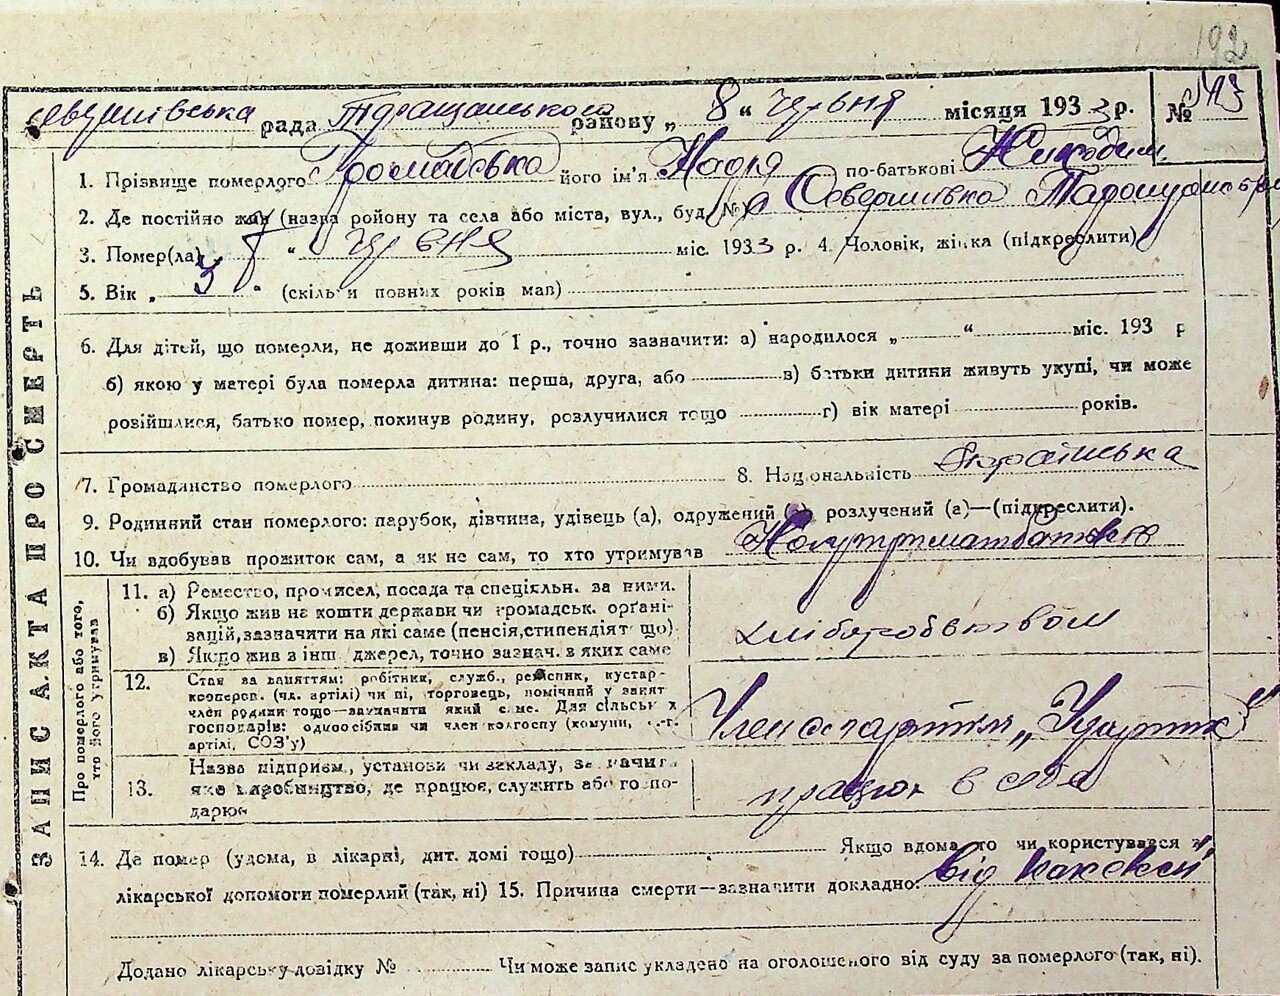 192
рада Таращанського району „ 8 “ червня місяця 1933 р. №
1. Прізвище померлого Громадська його ім'я Надя по-батькові Никодим.
2. Де постійно жив (назва району та села або міста, вул., буд. №)
3. Помер(ла) „ 7 “ червня міс. 1933 р. 4. Чоловік, жінка (підкреслити)
5. Вік „ 3 “ (скільки повних років мав)
6. Для дітей, що померли, не доживши до 1 р., точно зазначити: а) народилося „ “ міс. 193 р
б) якою у матері була померла дитина: перша, друга, або в) батьки дитини живуть укупі, чи може
розійшлися, батько помер, покинув родину, розлучилися тощо г) вік матері років.
7. Громадянство померлого 8. Національність Українська
9. Родинний стан померлого: парубок, дівчина, удівець (а), одружений (а) розлучений (а)—(підкреслити).
10. Чи здобував прожиток сам, а як не сам, то хто утримував
11. а) Ремество, промисел, посада та спеціяльн. за ними.
б) Якщо жив на кошти держави чи громадськ. орґані-
зацій, зазначити на які саме (пенсія, стипендія тощо)
в) Якщо жив з інш. джерел, точно зазнач. з яких саме
хліборобством
12. Стан за заняттям: робітник, служб., ремісник, кустар-
кооперов. (чл. артілі) чи ні, торговець, помічний у занят
член родини тощо—зазначити який саме. Для сільськ х
господарів: одноосібник чи член колгоспу (комуни, с.-г.
артілі, СОЗ'у)
13. Назва підприєм., установи чи закладу, зазначить
яке виробництво, де працює, служить або госпо-
дарює
працює в себе
14. Де помер (удома, в лікарні, дит. домі тощо) Якщо вдома, то чи користувався з
лікарської допомоги померлий (так, ні) 15. Причина смерти—зазначити докладно: від
Додано лікарську довідку № Чи може запис укладено на оголошеного від суду за померлого (так, ні).
ЗАПИС АКТА ПРО СМЕРТЬ
Про померлого або того,
хто його утримував